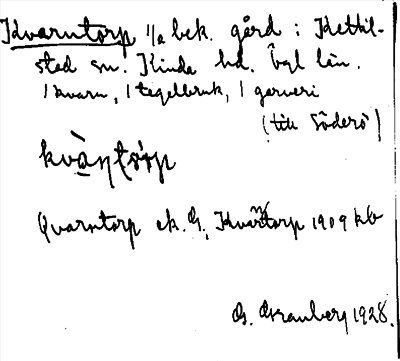 Kvarntorp 1/2 bek. gård : Kettil-
stad sn. Kinda hd. Ögl län.
1 kvarn, 1 tegelbruk, 1 garveri
(till Söderö)
kvà̱ɳʈórp
Qvarntorp ek. G., Kvarntorp 1909 kb
G. Granberg 1928.